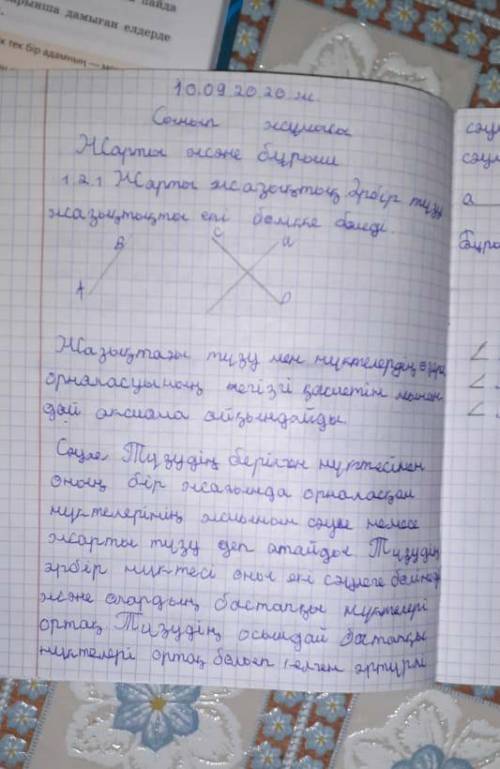 пайда
барынша дамыған елдерде
к тек бір адамның —
10.09.2020 ж.
Сынып жұмысы
Жарты және бұрыш
1.2.1 Жарты жазықтық Әрбір түзу
жазықтықты екі бөлікке бөледі.
B
C
a
A
D
Жазықтағы түзу мен нүктелердің өзара
орналасуының негізгі қасиетін мынан
дай аксиома айқындайды.
Сәуле. Түзудің берілген нүктесінен
оның бір жағында орналасқан
нүктелерінің жиынын сәуле немесе
жарты түзу деп атайды. Түзудің
әрбір нүктесі оны екі сәулеге бөледі
және олардың бастапқы нүктелері
ортақ. Түзудің осындай бастапқы
нүктелері ортақ болып келген әртүрлі
сәу
сәу
a
Бұры
∠
∠
∠